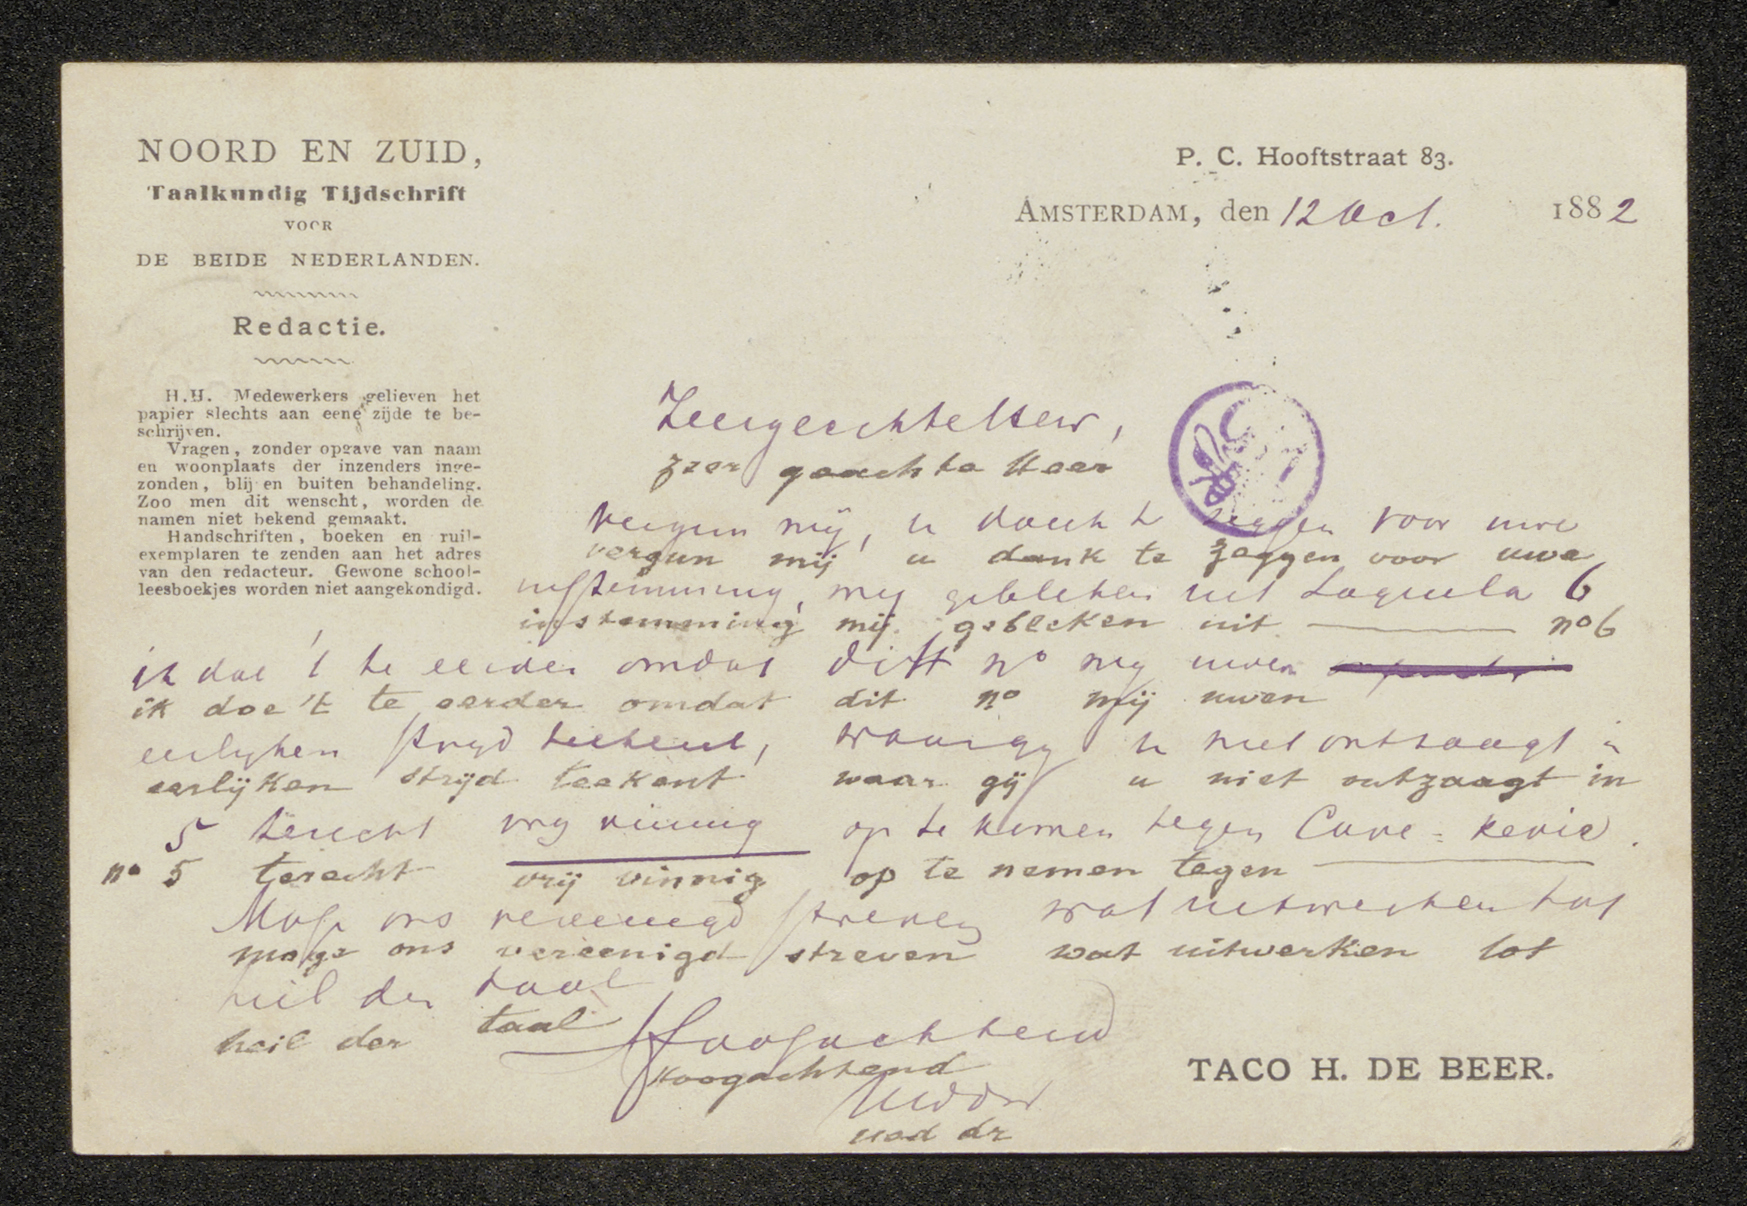 NOORD EN ZUID,
Taalkundig Tijdschrift
VOOR
DE BEIDE NEDERLANDEN.
Redactie.
H.H. Medewerkers gelieven het
papier slechts aan eene zijde te be-
schrijven.
Vragen, zonder opgave van naam
en woonplaats der inzenders inge-
zonden, blijven buiten behandeling.
Zoo men dit wenscht, worden de
namen niet bekend gemaakt.
Handschriften, boeken en ruil-
exemplaren te zenden aan het adres
van den redacteur. Gewone school-
leesboekjes worden niet aangekondigd.
P. C. Hooftstraat 83.
AMSTERDAM, den 12 Oct. 1882
Zeergeachte Heer,
zeer geachte Heer
Vergun mij, u dank te zeggen voor uwe
vergun mij u dank te zeggen voor uwe
instemming, mij gebleken uit Loquela 6
instemming mij gebleken uit no 6
ik doe 't te eerder omdat dit no mij uwen
ik doe 't te eerder omdat dit no mij uwen
eerlyken stryd teekent, waar gy u niet ontzaagt in
eerlijken strijd teekent waar gij u niet ontzaagt in
5 terecht vry vinnig op te komen tegen
no 5 terecht vrij vinnig op te nemen tegen
Moge ons vereenigd streven wat uitwerken tot
moge ons vereenigd streven wat uitwerken tot
heil der taal
heil der taal
Hoogachtend
Hoogachtend
Uwddr
uod dr
TACO H. DE BEER.